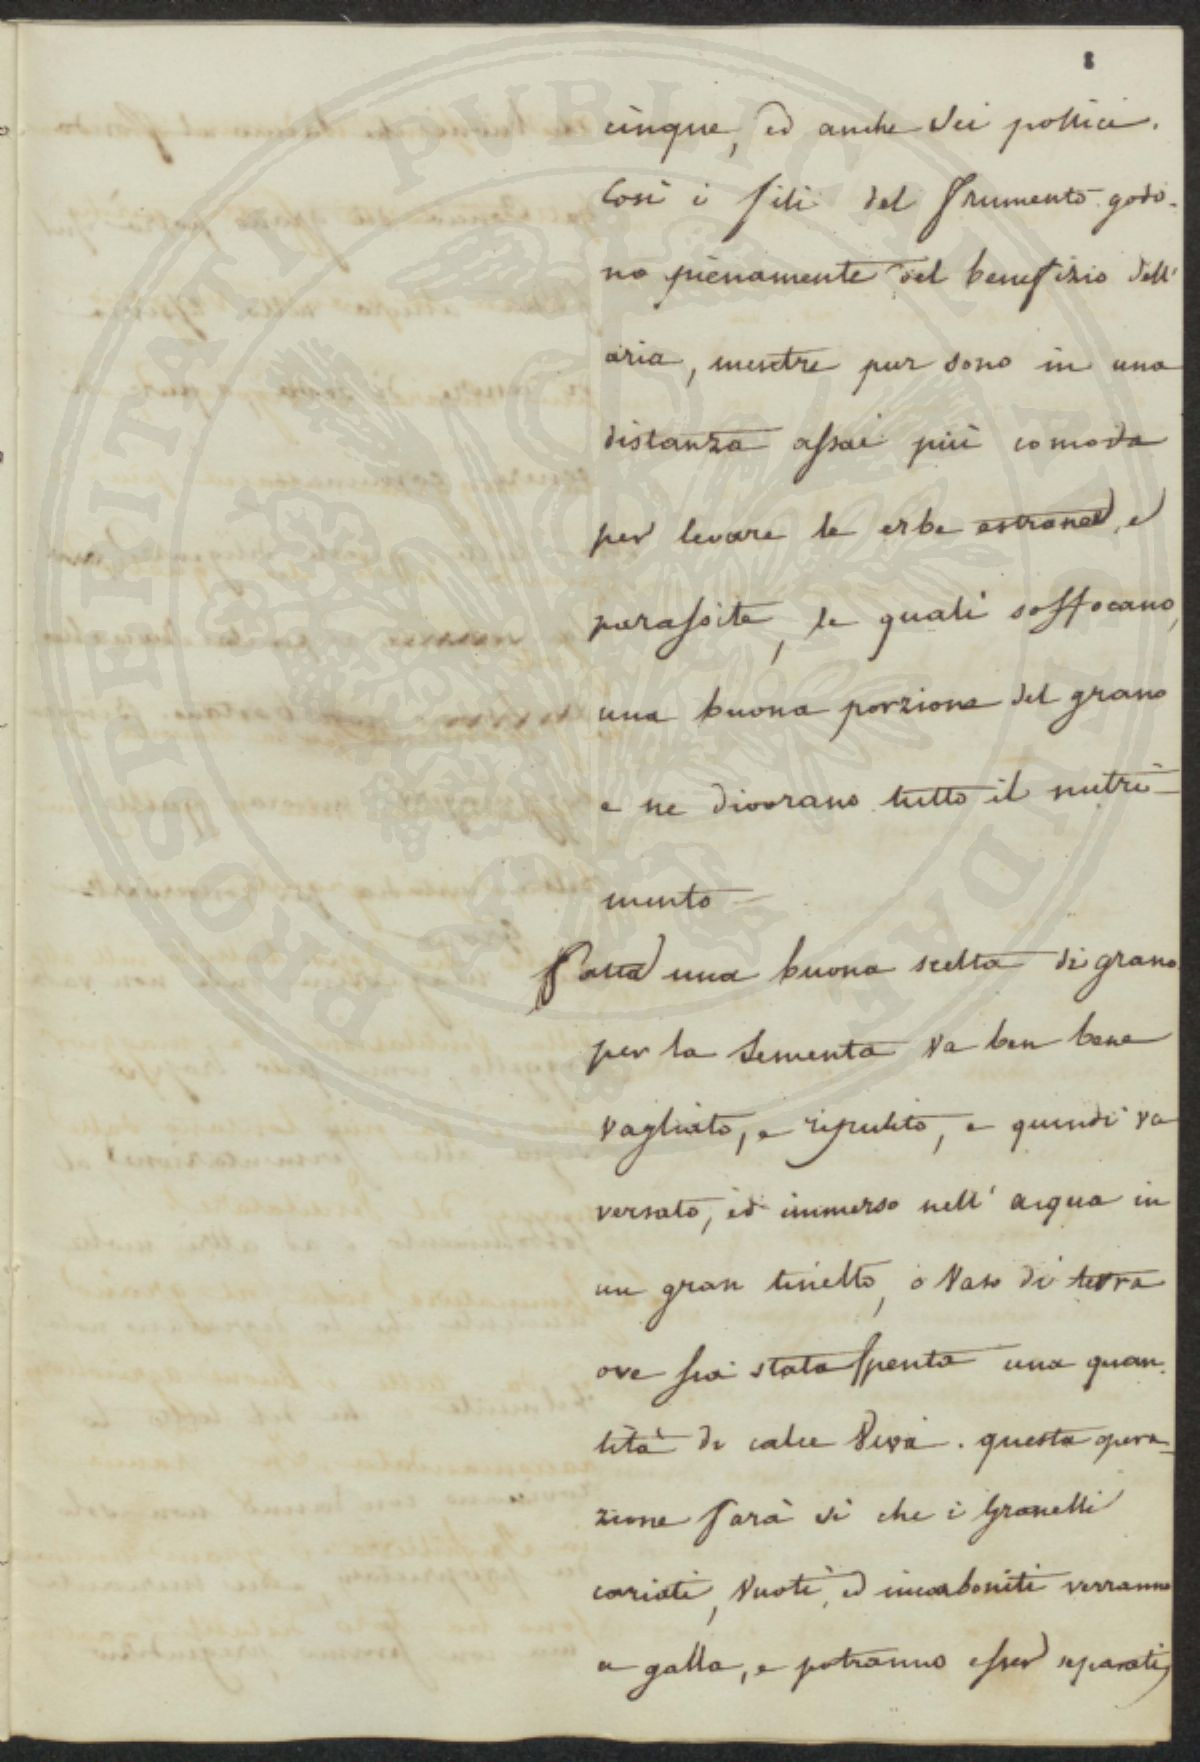 8
cinque, ed anche sei pollici.
Così i fili del frumento godo-
no pienamente del benefizio dell'
aria, mentre pur sono in una
distanza assai più comoda
per levare le erbe estranee, e
parassite, le quali soffocano,
una buona porzione del grano
e ne divorano tutto il nutri-
mento
Fatta una buona scelta di grano
per la sementa va ben bene
vagliato, e ripulito, e quindi va
versato, ed immerso nell' acqua in
un gran tinello, o vaso di terra
ove sia stata spenta una quan-
tità di calce viva. questa opera-
zione farà sì che i granelli
cariati, vuoti, ed incarboniti verranno
a galla, e potranno esser separati,
PROSPERITATI PUBLICAE AUGENDAE